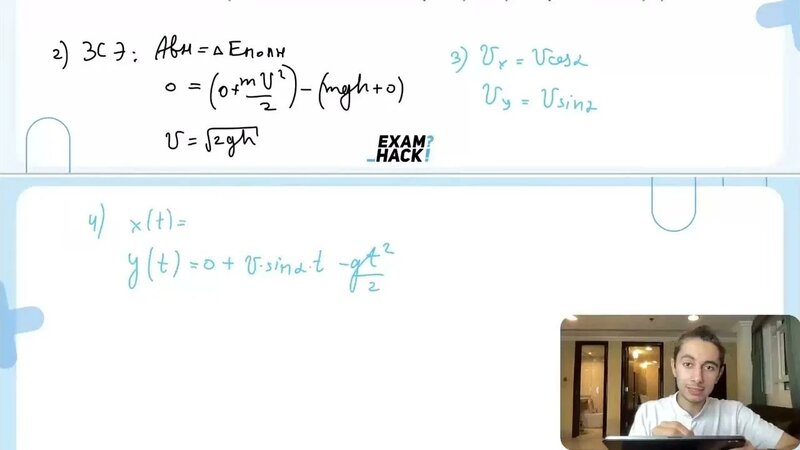 2) ЗСЭ: Aвн = ΔEполн
0 = (0 + mV²/2) − (mgh + 0)
V = √2gh
3) Vx = Vcosα
Vy = Vsinα
EXAM?
_HACK!
4) x(t) =
y(t) = 0 + V·sinα·t − gt²/2